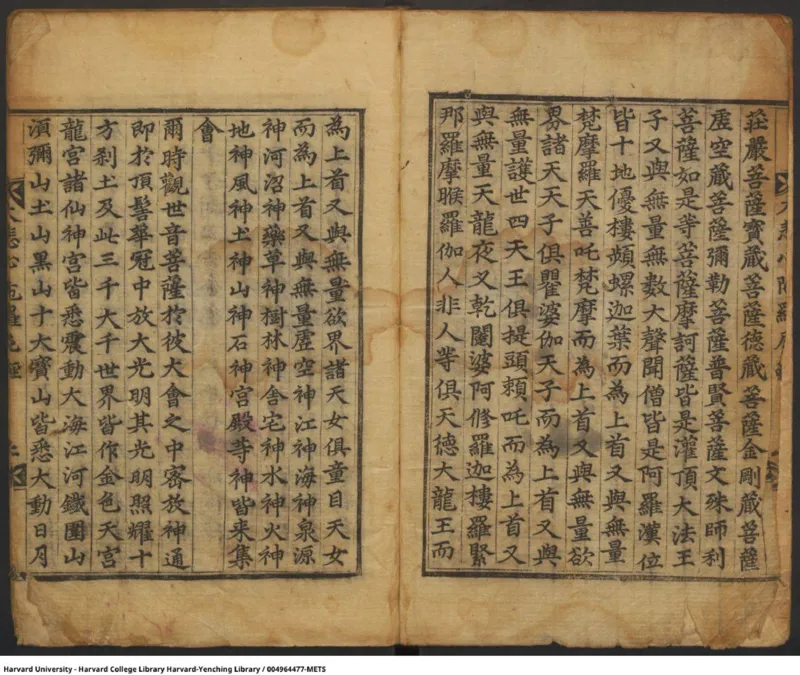 莊嚴菩薩寶藏菩薩德藏菩薩金剛藏菩薩
虛空藏菩薩彌勒菩薩普賢菩薩文殊師利
菩薩如是等菩薩摩訶薩皆是灌頂大法王
子又與無量無數大聲聞僧皆是阿羅漢位
皆十地優樓頻螺迦葉而為上首又與無量
梵摩羅天善吒梵摩而為上首又與無量欲
界諸天天子俱瞿婆伽天子而為上首又與
無量護世四天王俱提頭賴吒而為上首又
與無量天龍夜叉乾闥婆阿修羅迦樓羅緊
那羅摩睺羅伽人非人等俱天德大龍王而
為上首又與無量欲界諸天女俱童目天女
而為上首又與無量虛空神江神海神泉源
神河沼神藥草神樹林神舍宅神水神火神
地神風神土神山神石神宮殿等神皆来集
會
爾時觀世音菩薩於彼大會之中密放神通
即於頂髻華冠中放大光明其光明照耀十
方剎土及此三千大千世界皆作金色天宮
龍宮諸仙神宮皆悉震動大海江河鐵圍山
湏彌山土山黒山十大寶山皆悉大動日月
Harvard University - Harvard College Library Harvard-Yenching Library / 004964477-METS